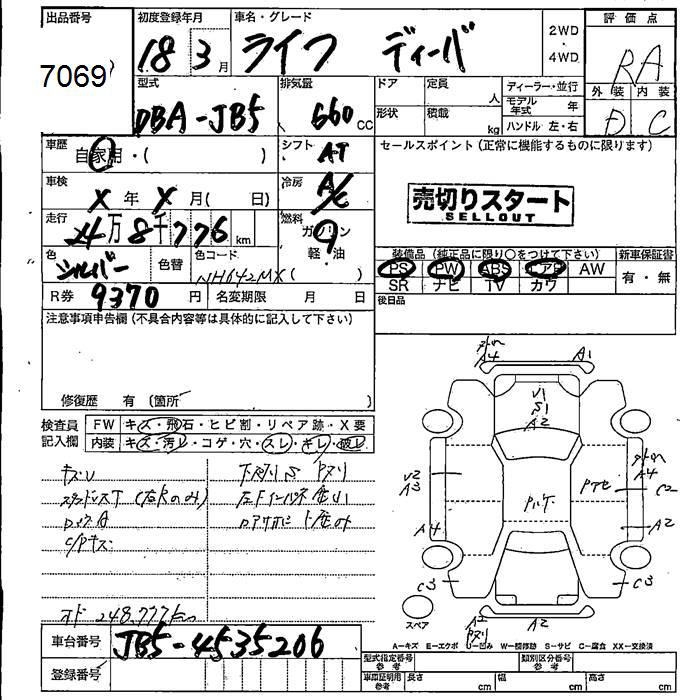 出品番号
7069
初度登録年月
18 3月
車名・グレード
ライフ ディーバ
2WD
・
4WD
評価点
RA
外装 内装
D C
型式
DBA-JB5
排気量
660 CC
ドア
定員
人
形状
積載
kg
ディーラー・並行
モデル年式 年
ハンドル 左・右
車歴
自家用・( )
シフト
AT
車検
X年 X月( 日)
冷房
A/C
走行
24万8千776 km
燃料
ガソリン
軽・油
( )
色
シルバー
色替
色コード
NH642MX
R券 9370円
名変期限 月 日
セールスポイント (正常に機能するものに限ります)
売切りスタート
SELLOUT
装備品 (純正品に限り○をつけて下さい)
新車保証書
PS PW ABS エアB AW
有・無
SR ナビ TV カワ
後日品
注意事項申告欄 (不具合内容等は具体的に記入して下さい)
修復歴 有 (箇所
検査員
記入欄
FW キズ・飛石・ヒビ割・リペア跡・X要
内装 キズ・汚レ・コゲ・穴・スレ・キレ・破レ
キズU
スタッドレスT (右Rのみ)
C/Pキズ
下廻りS
オド 248,777km
車台番号 JB5-4535206
登録番号
A4
A1
V1
S1
A2
Pルーフ
U2
A3
A4
A4
C2
A2
C3
C3
スペア
A2
A2
A-キズ E-エクボ U-凹み W-補修跡 S-サビ C-腐食 XX-交換済
型式指定番号
参考
類別区分番号
参考
車庫証明用
参考
長さ cm
幅 cm
高さ cm